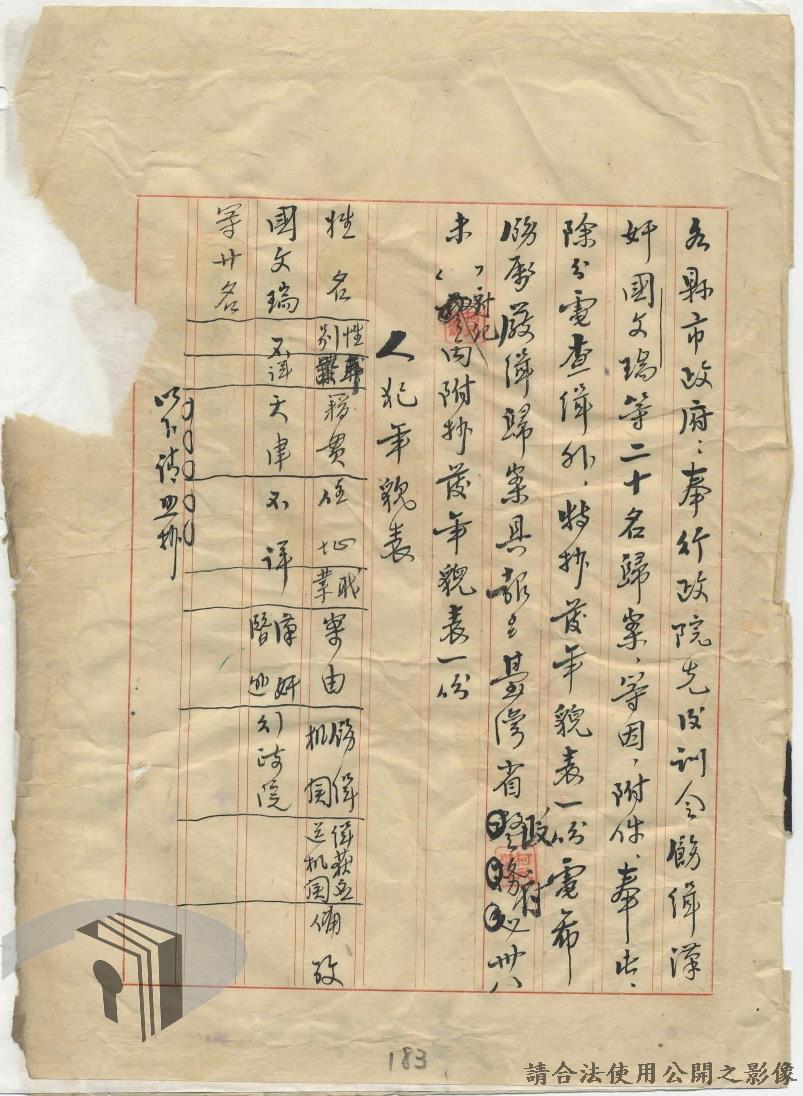 各縣市政府：奉行政院先後訓令飭緝漢
奸國文瑞等二十名歸案，等因，附件，奉此，
除分電查緝外，特抄發年貌表一份電希
飭屬嚴緝歸案具報臺灣省政府
未 附抄發年貌表一份
人犯年貌表
姓名 性別 籍貫 住址 職業 案由 飭緝机関 緝获应送机関 備攷
國文瑞 不詳 天津 不詳 漢奸 行政院
等廿名
以下請照抄
183
請合法使用公開之影像